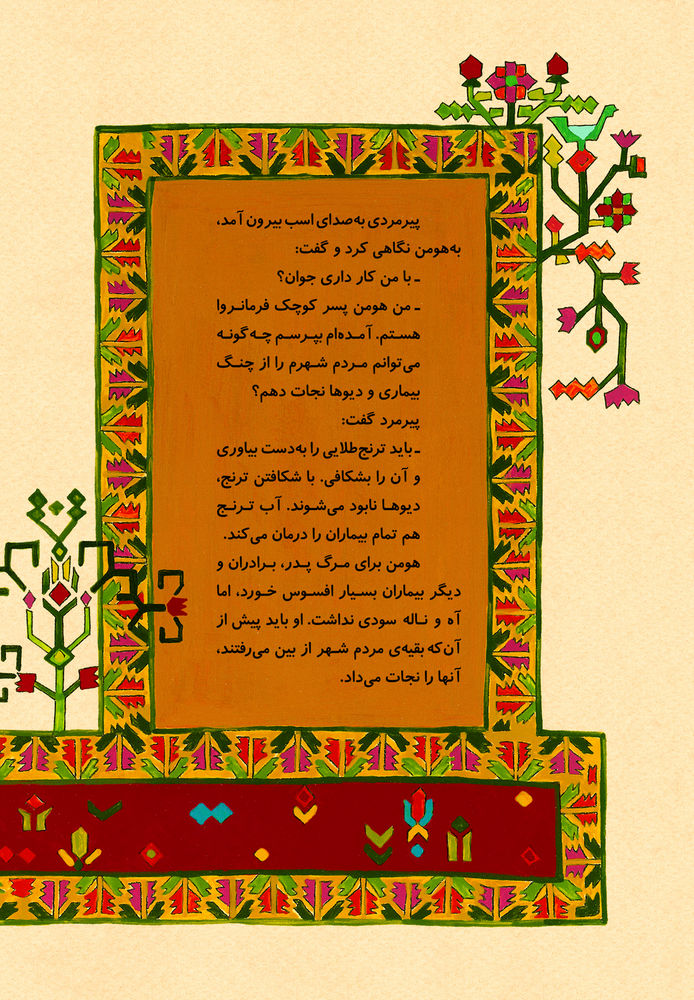 پیرمردی به‌صدای اسب بیرون آمد،
به‌هومن نگاهی کرد و گفت:
ـ با من کار داری جوان؟
ـ من هومن پسر کوچک فرمانـروا
هستـم. آمـده‌ام بپرسـم چـه گونـه
می‌توانم مـردم شهـرم را از چنـگ
بیماری و دیوها نجات دهم؟
پیرمرد گفت:
ـ باید ترنج‌طلایی را به‌دست بیاوری
و آن را بشکافی. با شکافتن ترنج،
دیوهـا نابود می‌شوند. آب تـرنـج
هم تمام بیماران را درمان می‌کند.
هومن برای مـرگ پـدر، بـرادران و
دیگر بیماران بسیـار افسوس خـورد، اما
آه و نـاله سودی نداشت. او باید پیش از
آن‌که بقیه‌ی مردم شهـر از بین می‌رفتند،
آنها را نجات می‌داد.